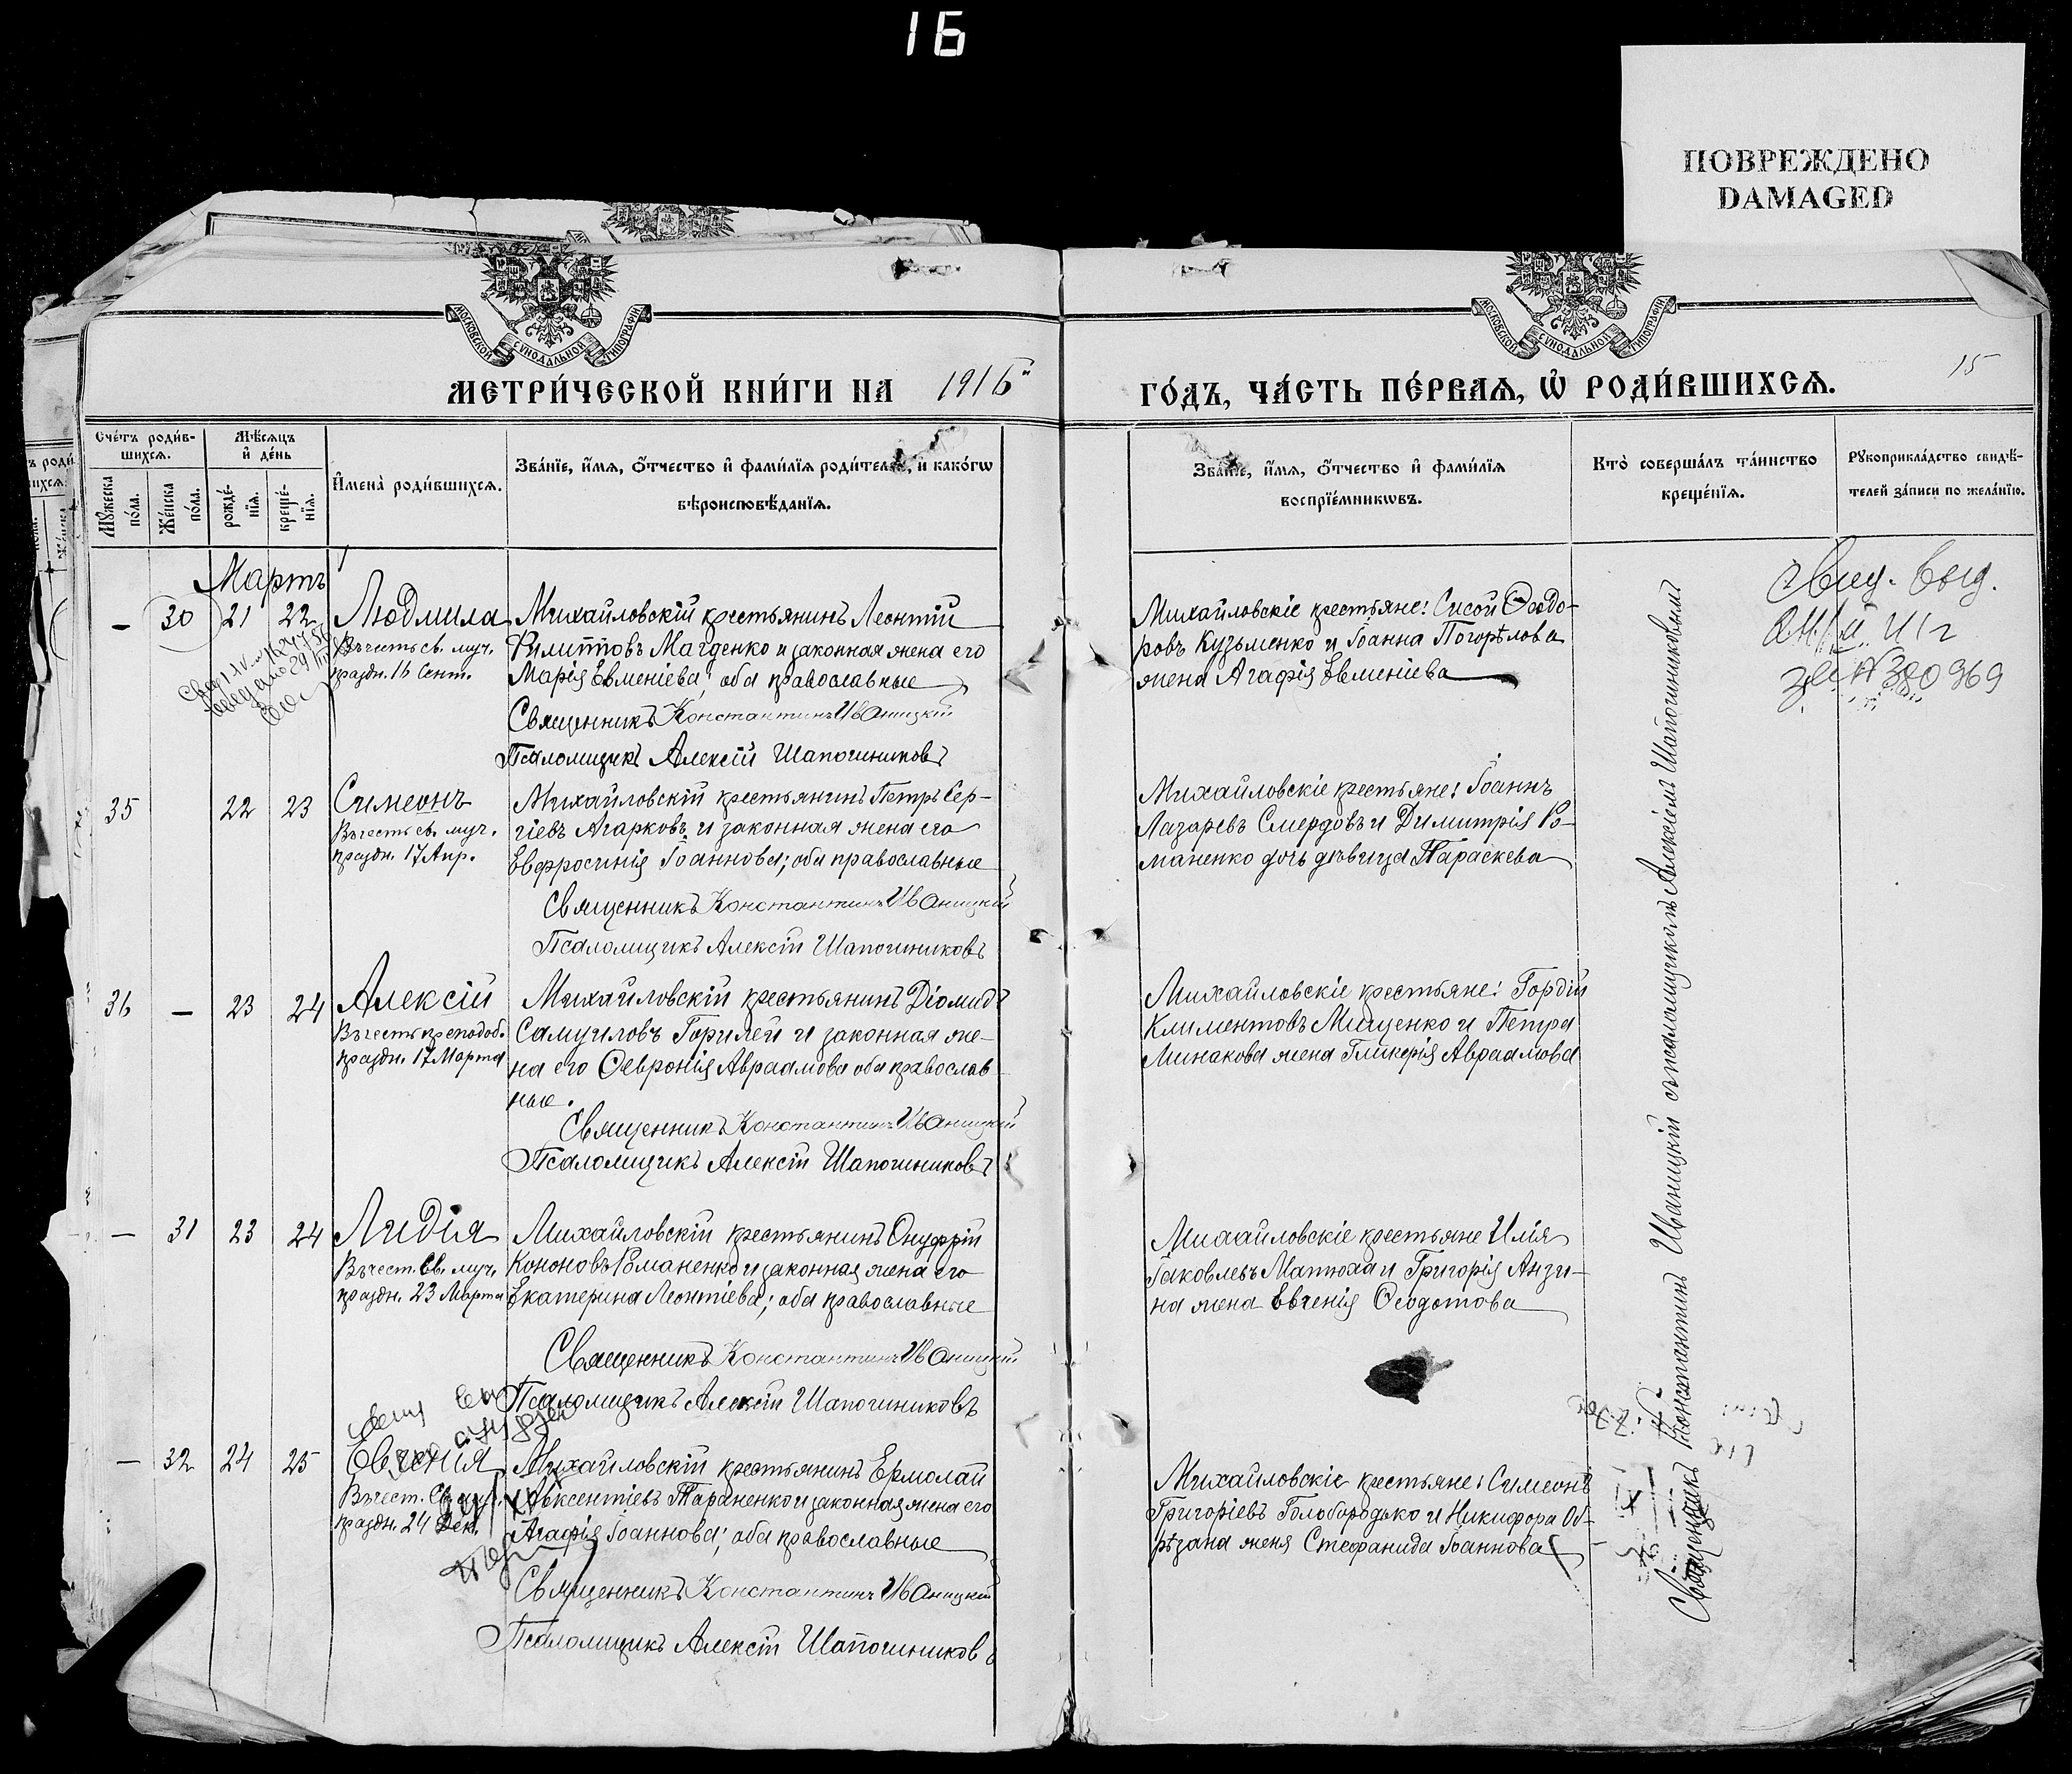 16
ПОВРЕЖДЕНО
DAMAGED
МОСКОВСКОЙ СУНОДАЛЬНОЙ ТИПОГРАФІИ
МОСКОВСКОЙ СУНОДАЛЬНОЙ ТИПОГРАФІИ
15
МЕТРИ́ЧЕСКОЙ КНИ́ГИ НА 1916й ГО́ДЪ, ЧА́СТЬ ПЕ́РВАѦ, Ѡ҆ РОДИ́ВШИХСѦ.
Счéтъ роди́в-
шихсѧ.
Мꙋ́жеска по́ла.
Же́нска по́ла.
Мѣ́сѧцъ и҆ де́нь
рожде́-
нїѧ.
креще́-
нїѧ.
И҆мена̀ роди́вшихсѧ.
Зва́нїе, и҆́мѧ, ѻ҆́тчество и҆ фами́лїѧ роди́телей, и како́гѡ
вѣроисповѣ́данїѧ.
Зва́нїе, и҆́мѧ, ѻ҆́тчество и҆ фами́лїѧ
воспрїе́мникѡвъ.
Кто̀ соверша́лъ та́инство
креще́нїѧ.
Рꙋкоприкла́дство свидѣ́-
телей за́писи по жела́нїю.
Мартъ
— 30 21 22 Людмила
Въ честь св. муч.
праздн. 16 Сент.
Михайловскій крестьянинъ Леонтій
Филипповъ Магденко и законная жена его
Марія Евменіева; оба православные
Священникъ Константинъ Иваницкій
Псаломщикъ Алексій Шапошниковъ
Михайловскіе крестьяне: Сисой Ѳеодо-
ровъ Кузьменко и Іоанна Погорѣлова
жена Агафія Евменіева
Свид. выд.
№ 380969
35 22 23 Симеонъ
Въ честь св. муч.
праздн. 17 Апр.
Михайловскій крестьянинъ Петръ Сер-
гіевъ Агарковъ и законная жена его
Евфросинія Іоаннова; оба православные
Священникъ Константинъ Иваницкій
Псаломщикъ Алексій Шапошниковъ
Михайловскіе крестьяне: Іоаннъ
Лазаревъ Смердовъ и Димитрія Ро-
маненко дочь дѣвица Параскева
36 — 23 24 Алексій
Въ честь преподоб.
праздн. 17 Марта
Михайловскій крестьянинъ Діомидъ
Самуиловъ Горилей и законная же-
на его Ѳевронія Авраамова оба православ
ные.
Священникъ Константинъ Иваницкій
Псаломщикъ Алексій Шапошниковъ
Михайловскіе крестьяне: Гордій
Климентовъ Мищенко и Петра
Минакова жена Гликерія Авраамова
— 31 23 24 Лидія
Въ чест. Св. муч.
праздн. 23 Марта
Михайловскій крестьянинъ Онуфрій
Кононовъ Романенко и законная жена его
Екатерина Леонтіева; оба православные
Священникъ Константинъ Иваницкій
Псаломщикъ Алексій Шапошниковъ
Михайловскіе крестьяне Илія
Іаковлевъ Матюха и Григорія Анзи-
на жена Евгенія Ѳеодотова
— 32 24 25 Евгенія
Въ чест. Св. муч.
праздн. 24 Дек.
Михайловскій крестьянинъ Ермолай
Авксентіевъ Тараненко и законная жена его
Агафія Іоаннова; оба православные
Священникъ Константинъ Иваницкій
Псаломщикъ Алексій Шапошниковъ
Михайловскіе крестьяне: Симеонъ
Григоріевъ Голобородько и Никифора Об-
рѣзана жена Стефанида Іоаннова
Священникъ Константинъ Иваницкій съ псаломщикомъ Алексіемъ Шапошниковымъ